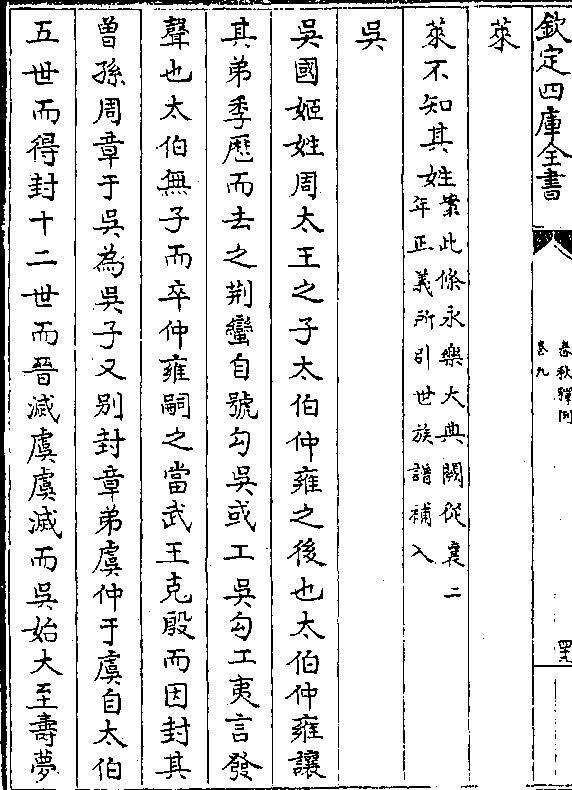 欽定四庫全書
春秋釋例
卷九
萊
萊不知其姓案此條永樂大典闕從襄二
年正義所引世族譜補入
吳
吳國姬姓周太王之子太伯仲雍之後也太伯仲雍讓
其弟季歷而去之荆蠻自號勾吳或工吳勾工夷言發
聲也太伯無子而卒仲雍嗣之當武王克殷而因封其
曾孫周章于吳為吳子又别封章弟虞仲于虞自太伯
五世而得封十二世而晉滅虞虞滅而吳始大至壽夢